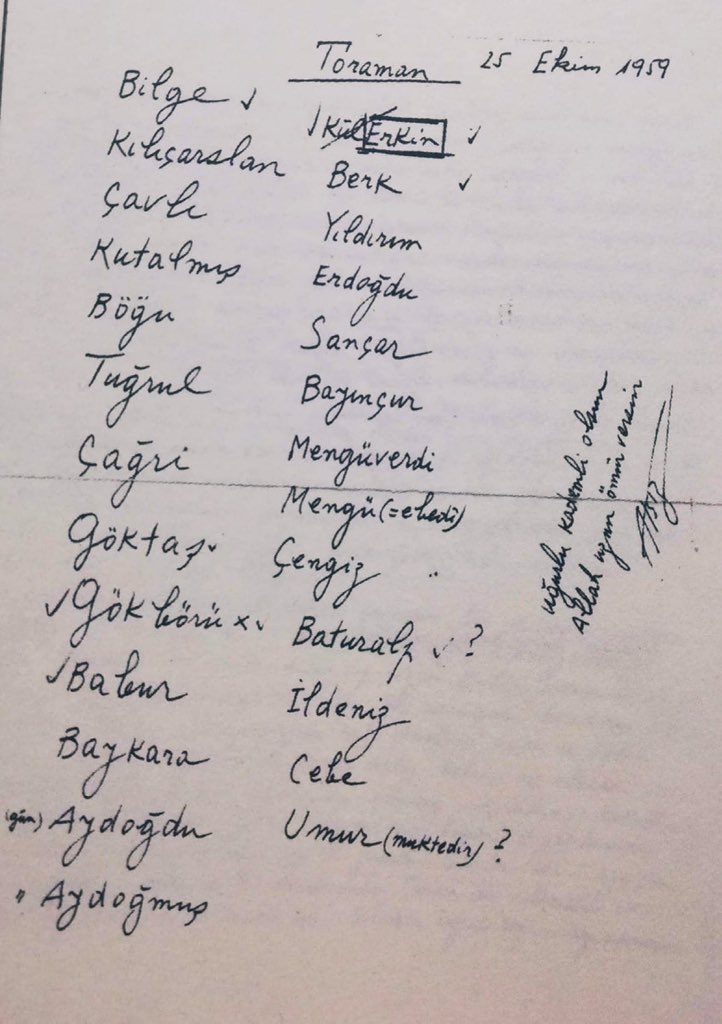 Toraman 25 Ekim 1959
Bilge ✓
Kılıçarslan
Çavlı
Kutalmış
Böğü
Tuğrul
Çağrı
Göktaş
✓ Gökbörü x
✓ Babur
Baykara
(gün) Aydoğdu
" Aydoğmuş
✓ Kül Erkin ✓
Berk ✓
Yıldırım
Erdoğdu
Sançar
Bayınçur
Mengüverdi
Mengü (=ebedî)
Çengiz
Baturalp ✓ ?
İldeniz
Cebe
Umur (muktedir) ?
Uğurlu kademli olsun
Allah uzun ömür versin